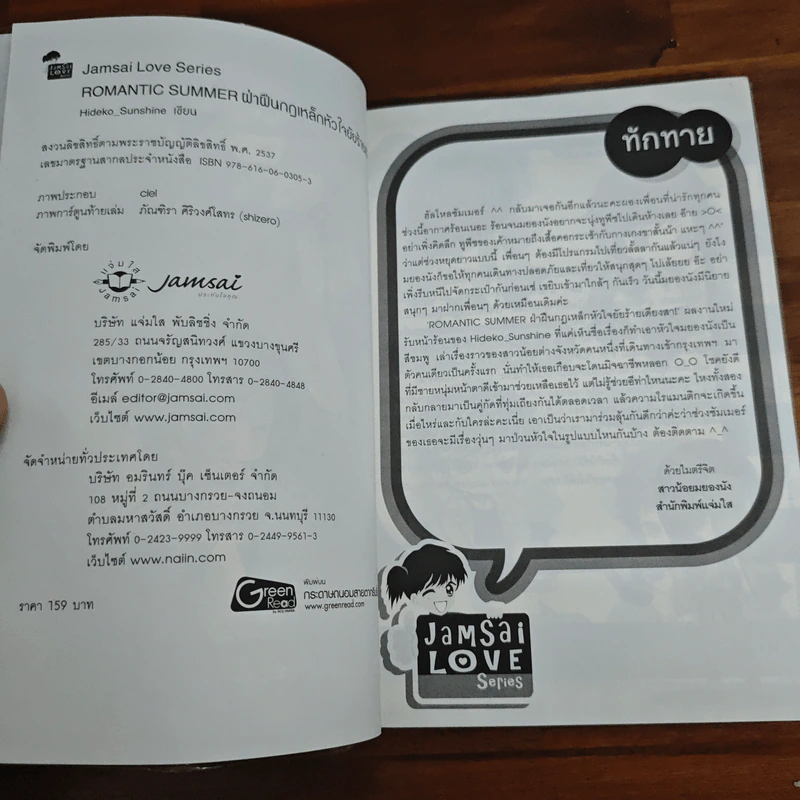 Jamsai Love Series
ROMANTIC SUMMER ฝ่าฝืนกฎเหล็กหัวใจยัยร้าย
Hideko_Sunshine เขียน
สงวนลิขสิทธิ์ตามพระราชบัญญัติลิขสิทธิ์ พ.ศ. 2537
เลขมาตรฐานสากลประจำหนังสือ ISBN 978-616-06-0305-3
ภาพประกอบ ciel
ภาพการ์ตูนท้ายเล่ม ภัณฑิรา ศิริวงศ์โสทร (shizero)
จัดพิมพ์โดย
แจ่มใส
Jamsai
Jamsai
บริษัท แจ่มใส พับลิชชิ่ง จำกัด
285/33 ถนนจรัญสนิทวงศ์ แขวงบางขุนศรี
เขตบางกอกน้อย กรุงเทพฯ 10700
โทรศัพท์ 0-2840-4800 โทรสาร 0-2840-4848
อีเมล์ editor@jamsai.com
เว็บไซต์ www.jamsai.com
จัดจำหน่ายทั่วประเทศโดย
บริษัท อมรินทร์ บุ๊ค เซ็นเตอร์ จำกัด
108 หมู่ที่ 2 ถนนบางกรวย-จงถนอม
ตำบลมหาสวัสดิ์ อำเภอบางกรวย จ.นนทบุรี 11130
โทรศัพท์ 0-2423-9999 โทรสาร 0-2449-9561-3
เว็บไซต์ www.naiin.com
ราคา 159 บาท
Green Read
พิมพ์บน
กระดาษถนอมสายตากรีน
www.greenread.com
ทักทาย
ฮัลโหลซัมเมอร์ ^^ กลับมาเจอกันอีกแล้วนะคะผองเพื่อนที่น่ารักทุกคน
ช่วงนี้อากาศร้อนเนอะ ร้อนจนมยองนังอยากจะนุ่งทูพีซไปเดินห้างเลย อ๊าย >O<
อย่าเพิ่งคิดลึก ทูพีซของเค้าหมายถึงเสื้อคอกระเช้ากับกางเกงขาสั้นน้า แหะๆ ^^'
ว่าแต่ช่วงหยุดยาวแบบนี้ เพื่อนๆ ต้องมีโปรแกรมไปเที่ยวลั้ลลากันแล้วแน่ๆ ยังไง
มยองนังก็ขอให้ทุกคนเดินทางปลอดภัยและเที่ยวให้สนุกสุดๆ ไปเลยยย อ๊ะ อย่า
เพิ่งรีบหนีไปจัดกระเป๋ากันก่อนเซ่ เขยิบเข้ามาใกล้ๆ กันเร็ว วันนี้มยองนังมีนิยาย
สนุกๆ มาฝากเพื่อนๆ ด้วยเหมือนเดิมค่ะ
'ROMANTIC SUMMER ฝ่าฝืนกฎเหล็กหัวใจยัยร้ายเดียงสา!' ผลงานใหม่
รับหน้าร้อนของ Hideko_Sunshine ที่แค่เห็นชื่อเรื่องก็ทำเอาหัวใจมยองนังเป็น
สีชมพู เล่าเรื่องราวของสาวน้อยต่างจังหวัดคนหนึ่งที่เดินทางเข้ากรุงเทพฯ มา
ตัวคนเดียวเป็นครั้งแรก นั่นทำให้เธอเกือบจะโดนมิจฉาชีพหลอก O_O โชคยังดี
ที่มีชายหนุ่มหน้าตาดีเข้ามาช่วยเหลือเธอไว้ แต่ไม่รู้ช่วยอีท่าไหนนะคะ ไหงทั้งสอง
กลับกลายมาเป็นคู่กัดที่ทุ่มเถียงกันได้ตลอดเวลา แล้วความโรแมนติกจะเกิดขึ้น
เมื่อไหร่และกับใครล่ะคะเนี่ย เอาเป็นว่าเรามาร่วมลุ้นกันดีกว่าค่ะว่าช่วงซัมเมอร์
ของเธอจะมีเรื่องวุ่นๆ มาป่วนหัวใจในรูปแบบไหนกันบ้าง ต้องติดตาม ^_^
ด้วยไมตรีจิต
สาวน้อยมยองนัง
สำนักพิมพ์แจ่มใส
Jamsai
LOVE
Series